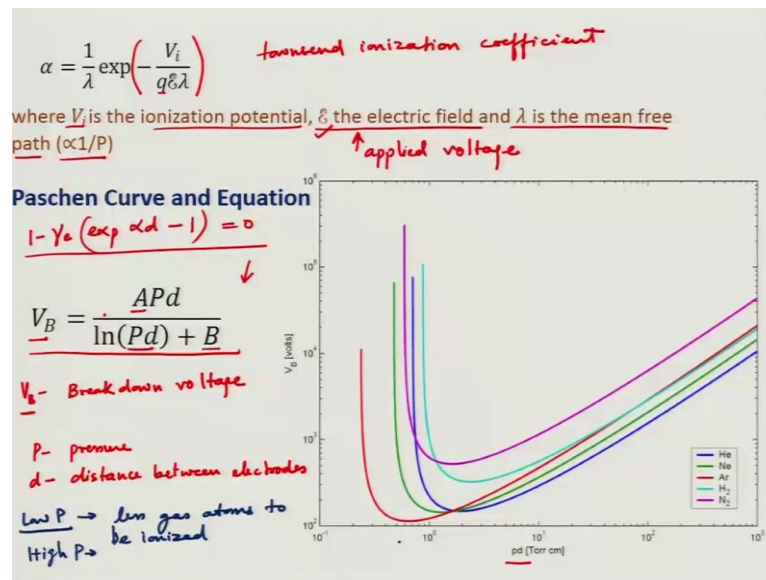 α = 1/λ exp(− Vᵢ/qℰλ) townsend ionization coefficient
where Vᵢ is the ionization potential, ℰ the electric field and λ is the mean free
path (∝1/P)
↑ applied voltage
Paschen Curve and Equation
1 - γe (exp αd - 1) = 0
↓
V_B = APd / ln(Pd) + B
V_B - Breakdown voltage
P - pressure
d - distance between electrodes
Low P → less gas atoms to
be ionized
High P →
10⁶
10⁵
10⁴
10³
10²
V_B [volts]
10⁻¹ 10⁰ 10¹ 10² 10³
pd [Torr cm]
He
Ne
Ar
H₂
N₂